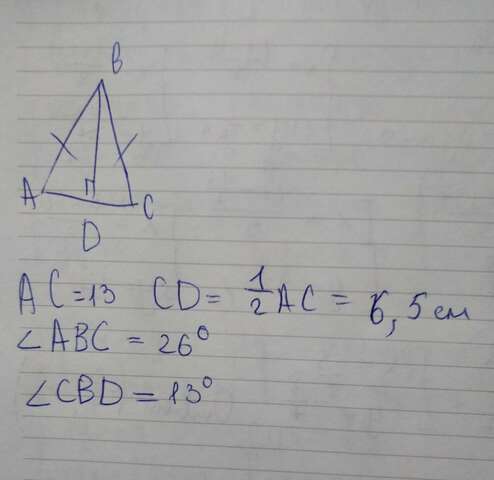 B
A
C
D
AC=13 CD= 1/2 AC = 6,5 см
∠ABC = 26°
∠CBD = 13°